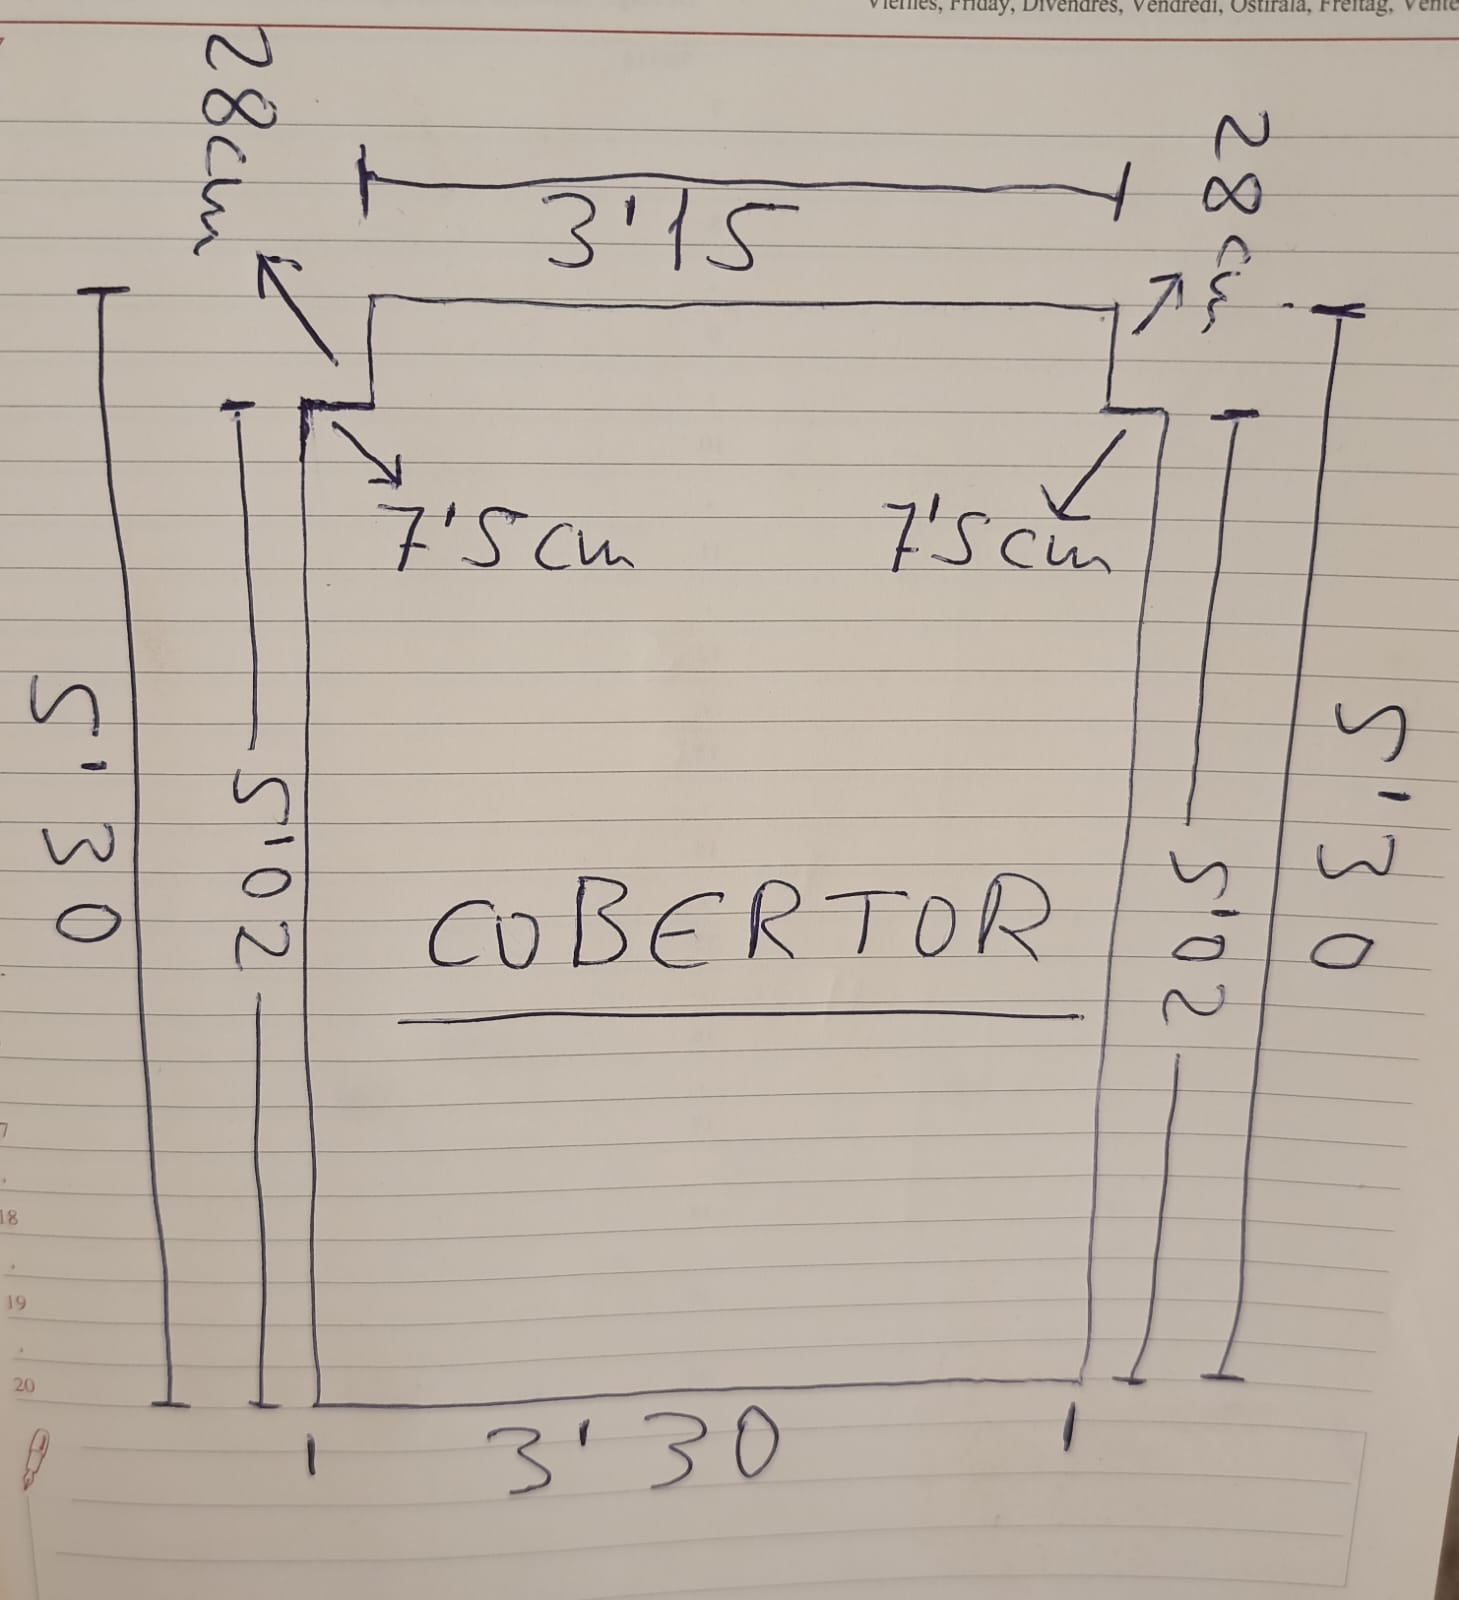 Viernes, Friday, Divendres, Vendredi, Ostirala, Freitag,
28cm
28cm
3'15
7'5cm
7'5cm
5'30
5'02
5'02
5'30
COBERTOR
18
19
20
3'30